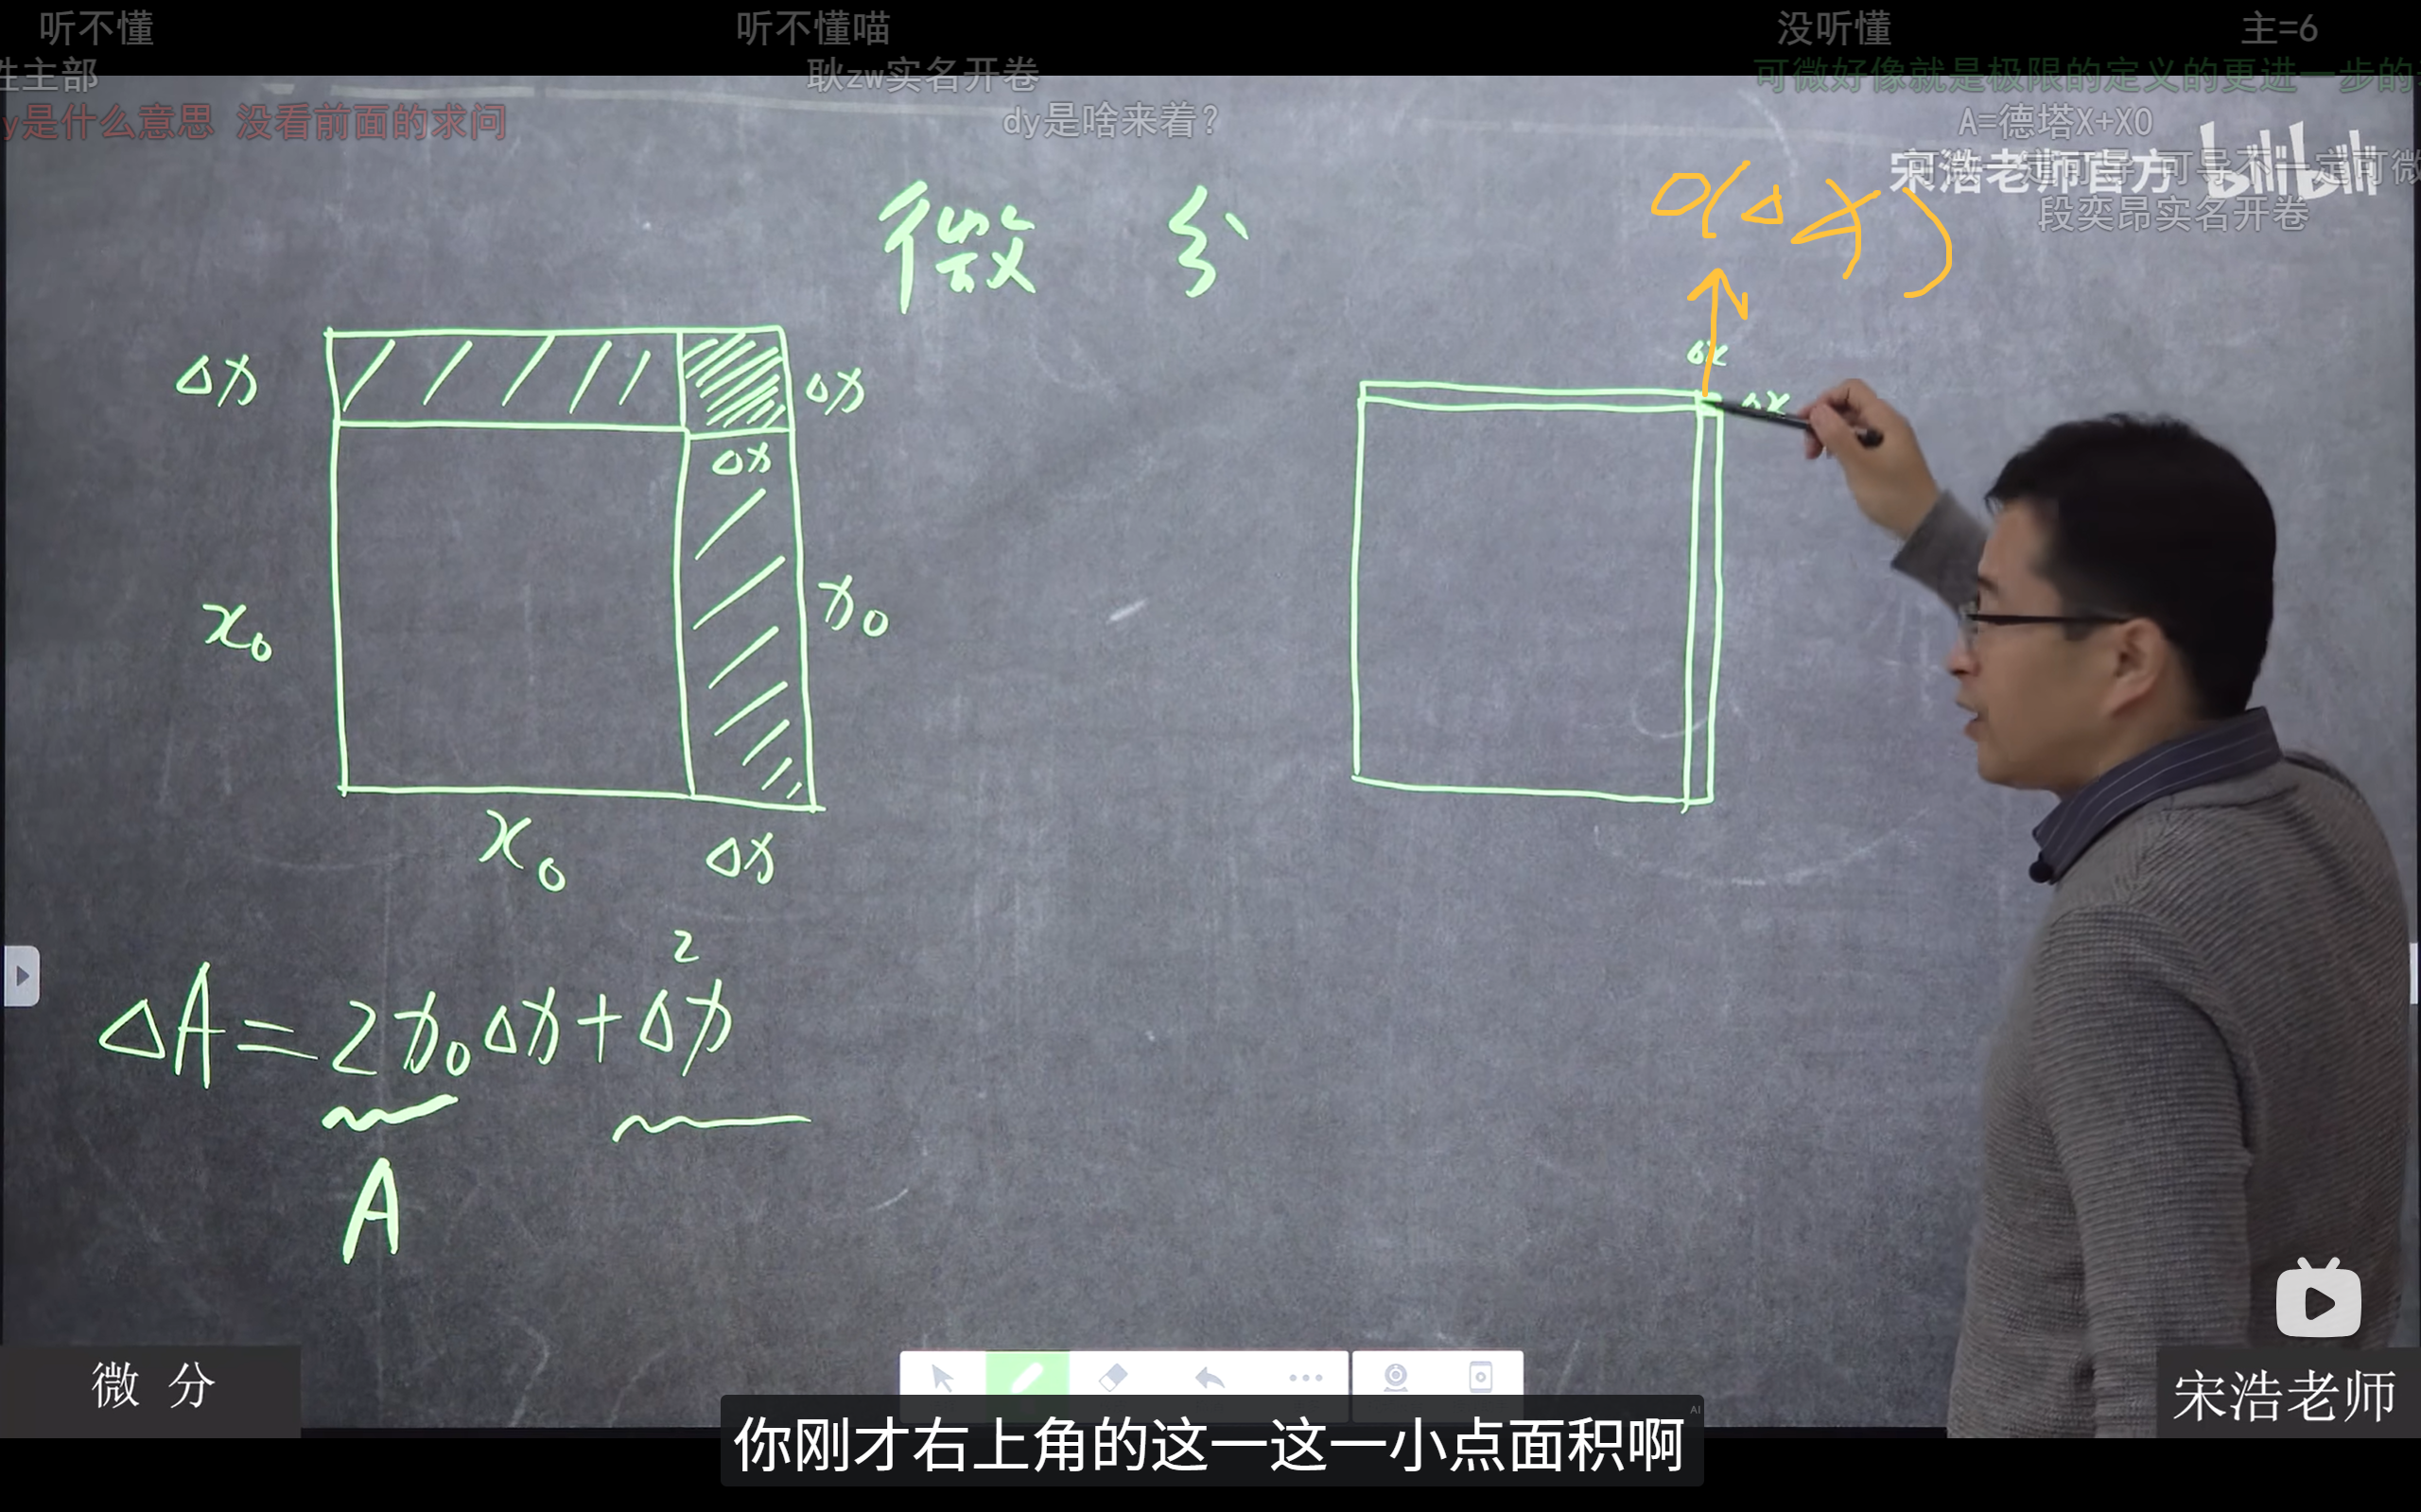 听不懂 听不懂喵 没听懂 主=6
性主部 耿zw实名开卷 可微好像就是极限的定义的更进一步的
y是什么意思 没看前面的求问 dy是啥来着? A=德塔X+X0
宋浩老师官方 bilibili
段奕昂实名开卷
o(Δx)
微 分
Δx
Δx
Δx
Δx
Δx
x₀
x₀
x₀
Δx
ΔA=2x₀Δx+Δx²
A
微 分
宋浩老师
AI
你刚才右上角的这一这一小点面积啊